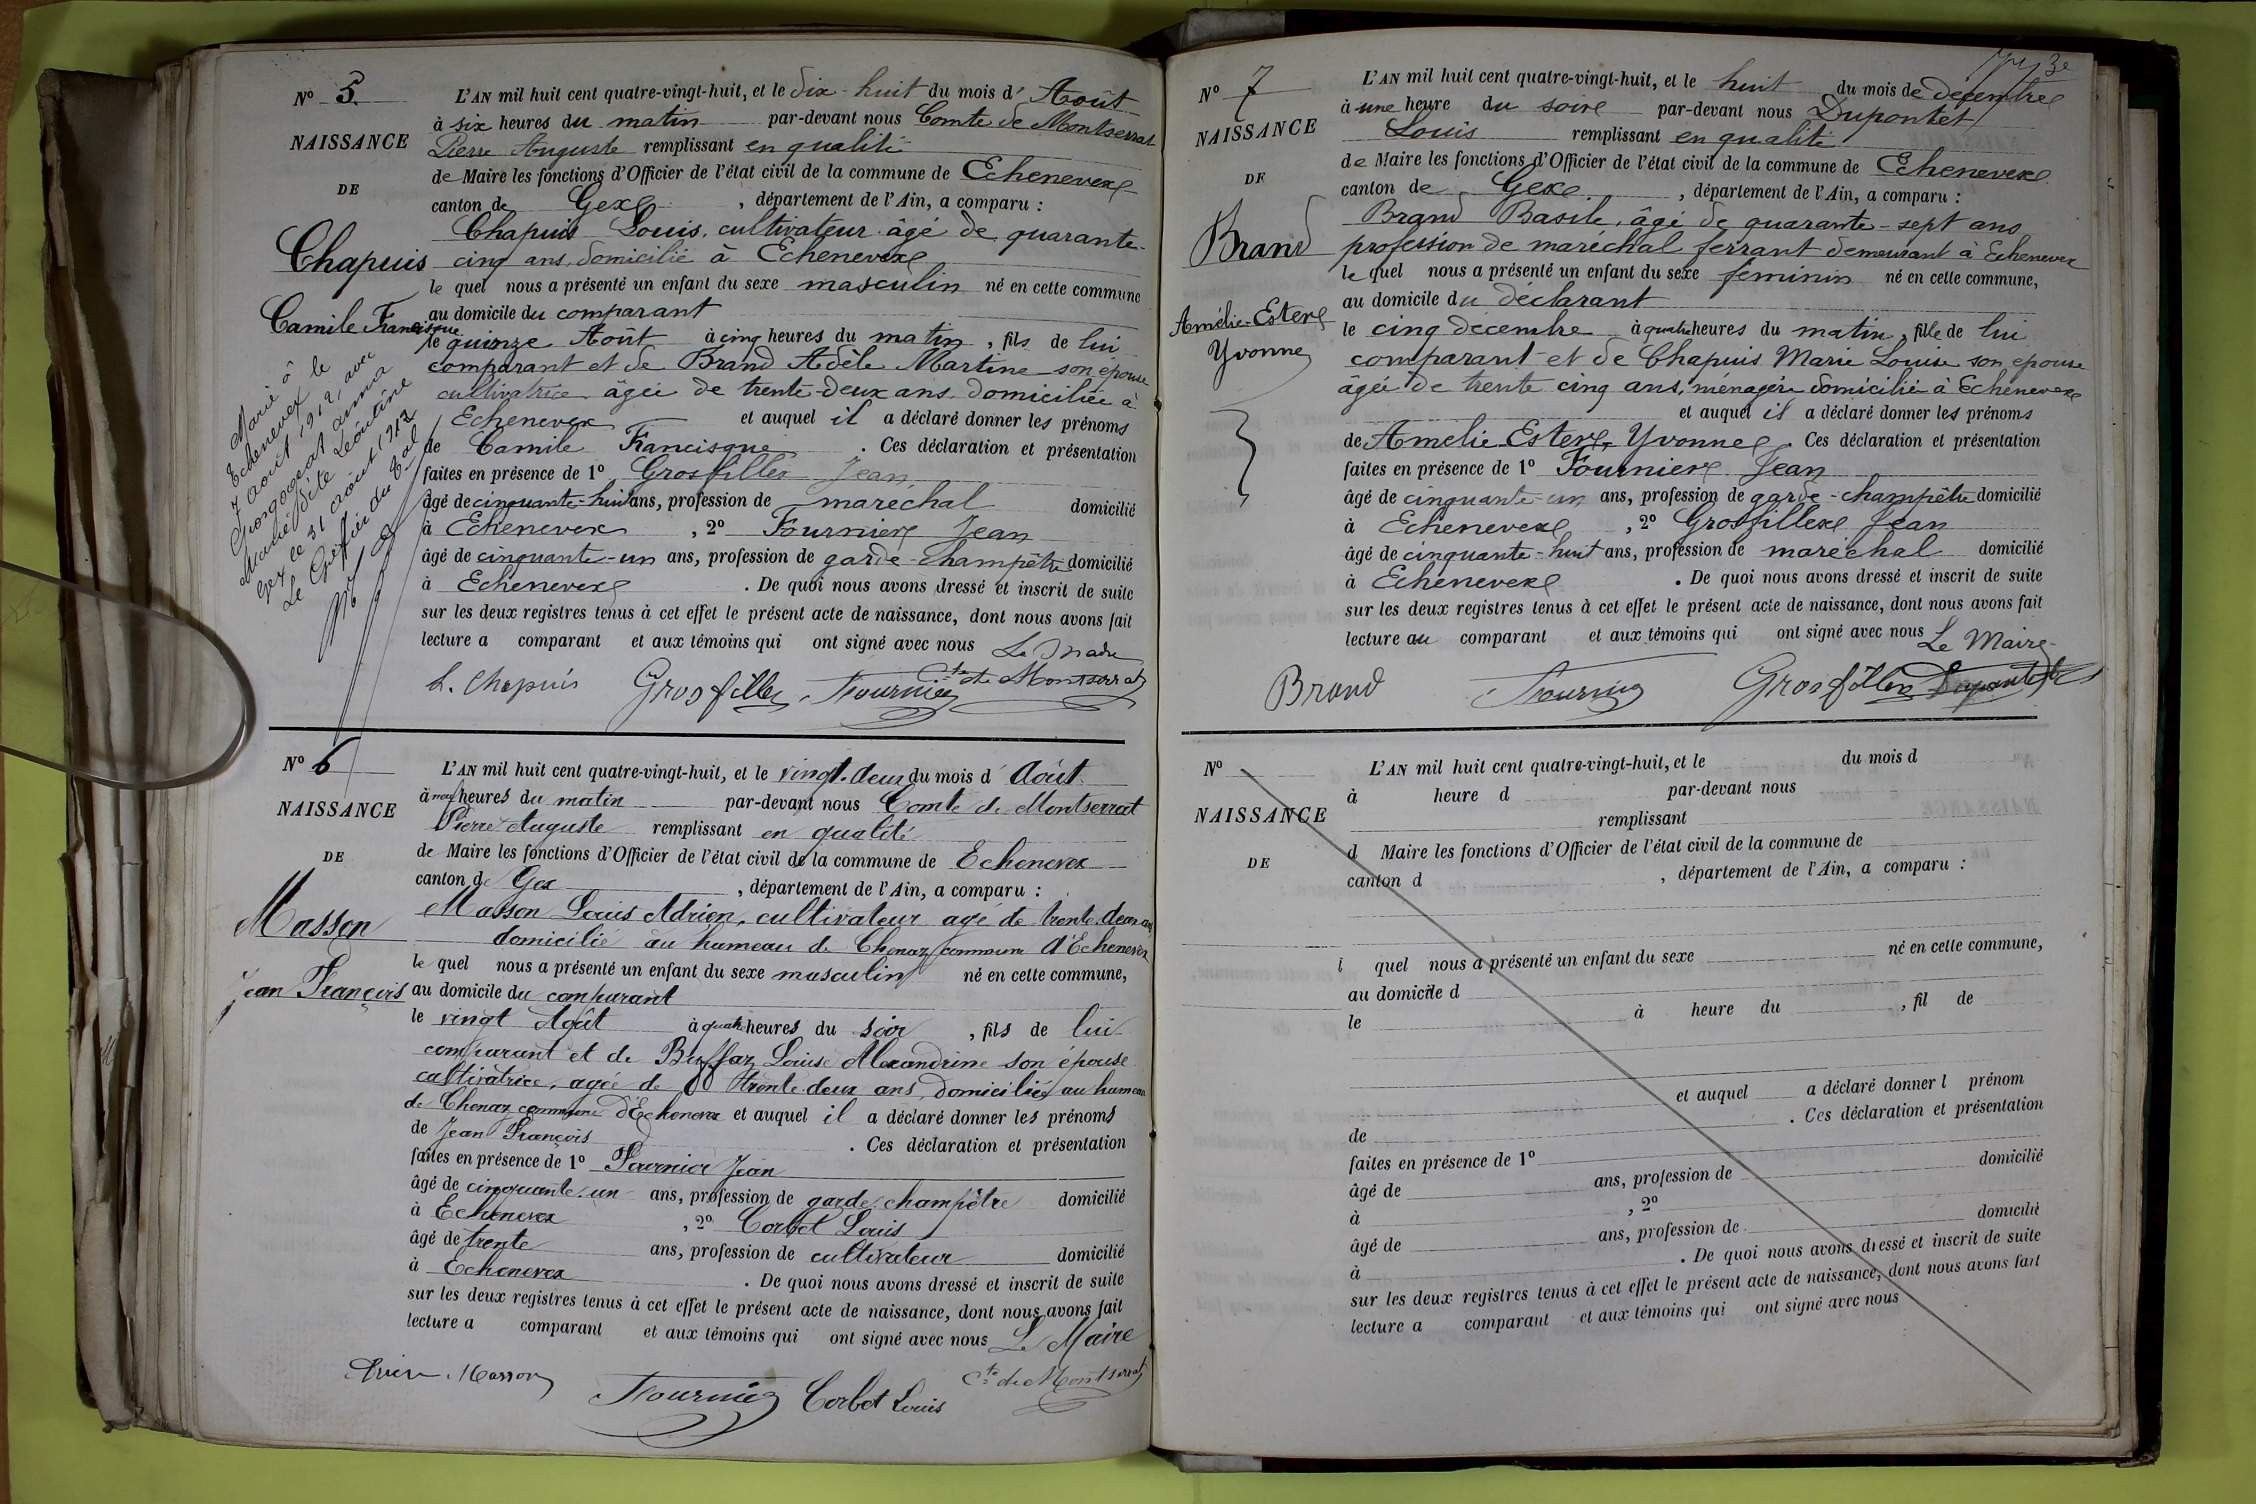 N° 5.
NAISSANCE
DE
Chapuis
Camile Francisque
Marié à
Echenevex le
7 août 1912, avec
Grosgogeat
Marie dite Léontine
Gex le 31 août 1912
Le Greffier du Tal
L'AN mil huit cent quatre-vingt-huit, et le dix-huit du mois d' Août
à six heures du matin par-devant nous Comte de Montserrat
Pierre Auguste remplissant en qualité
de Maire les fonctions d'Officier de l'état civil de la commune de Echenevex
canton de Gex, département de l'Ain, a comparu :
Chapuis Louis, cultivateur âgé de quarante-
cinq ans, domicilié à Echenevex
le quel nous a présenté un enfant du sexe masculin né en cette commune
au domicile du comparant
le quinze Août à cinq heures du matin, fils de lui
comparant et de Brand Adèle Martine son epouse
cultivatrice âgée de trente-deux ans, domiciliée à
Echenevex et auquel il a déclaré donner les prénoms
de Camile Francisque. Ces déclaration et présentation
faites en présence de 1° Grosfiller Jean
âgé de cinquante-huit ans, profession de maréchal domicilié
à Echenevex, 2° Fournier Jean
âgé de cinquante-un ans, profession de garde-champêtre domicilié
à Echenevex. De quoi nous avons dressé et inscrit de suite
sur les deux registres tenus à cet effet le présent acte de naissance, dont nous avons fait
lecture a comparant et aux témoins qui ont signé avec nous Le Maire
L. Chapuis Grosfiller Fournier Cte de Montserrat
N° 6
NAISSANCE
DE
Masson
Jean François
L'AN mil huit cent quatre-vingt-huit, et le vingt-deux du mois d' Août
à neuf heures du matin par-devant nous Comte de Montserrat
Pierre Auguste remplissant en qualité
de Maire les fonctions d'Officier de l'état civil de la commune de Echenevex
canton de Gex, département de l'Ain, a comparu :
Masson Louis Adrien, cultivateur agé de trente-deux ans
domicilié au hameau de Chenaz commune d'Echenevex
le quel nous a présenté un enfant du sexe masculin né en cette commune,
au domicile du comparant
le vingt Août à quatre heures du soir, fils de lui
comparant et de Buffaz Louise Alexandrine son épouse
cultivatrice, agée de trente-deux ans, domiciliée au hameau
de Chenaz commune d'Echenevex et auquel il a déclaré donner les prénoms
de Jean François. Ces déclaration et présentation
faites en présence de 1° Fournier Jean
âgé de cinquante-un ans, profession de garde-champêtre domicilié
à Echenevex, 2° Corbet Louis
âgé de trente ans, profession de cultivateur domicilié
à Echenevex. De quoi nous avons dressé et inscrit de suite
sur les deux registres tenus à cet effet le présent acte de naissance, dont nous avons fait
lecture a comparant et aux témoins qui ont signé avec nous Le Maire
Masson Fournier Corbet Louis Cte de Montserrat
3e
N° 7
NAISSANCE
DE
Brand
Amélie-Ester
Yvonne
L'AN mil huit cent quatre-vingt-huit, et le huit du mois de decembre
à une heure du soire par-devant nous Dupontet
Louis remplissant en qualité
de Maire les fonctions d'Officier de l'état civil de la commune de Echenevex
canton de Gex, département de l'Ain, a comparu :
Brand Basile, âgé de quarante-sept ans
profession de maréchal ferrant demeurant à Echenevex
le quel nous a présenté un enfant du sexe feminin né en cette commune,
au domicile du déclarant
le cinq decembre à quatre heures du matin, fille de lui
comparant et de Chapuis Marie Louise son epouse
âgée de trente cinq ans, ménagère domicilié à Echenevex
et auquel il a déclaré donner les prénoms
de Amélie Ester Yvonne. Ces déclaration et présentation
faites en présence de 1° Fournier Jean
âgé de cinquante-un ans, profession de garde-champêtre domicilié
à Echenevex, 2° Grosfiller Jean
âgé de cinquante-huit ans, profession de maréchal domicilié
à Echenevex. De quoi nous avons dressé et inscrit de suite
sur les deux registres tenus à cet effet le présent acte de naissance, dont nous avons fait
lecture au comparant et aux témoins qui ont signé avec nous Le Maire
Brand Fournier Grosfiller Dupontet
N°
NAISSANCE
DE
L'AN mil huit cent quatre-vingt-huit, et le du mois d
à heure d par-devant nous
remplissant
d Maire les fonctions d'Officier de l'état civil de la commune de
canton d , département de l'Ain, a comparu :
l quel nous a présenté un enfant du sexe né en cette commune,
au domicile d
le à heure du , fil de
et auquel a déclaré donner l prénom
de . Ces déclaration et présentation
faites en présence de 1°
âgé de ans, profession de domicilié
à , 2°
âgé de ans, profession de domicilié
à . De quoi nous avons dressé et inscrit de suite
sur les deux registres tenus à cet effet le présent acte de naissance, dont nous avons fait
lecture a comparant et aux témoins qui ont signé avec nous